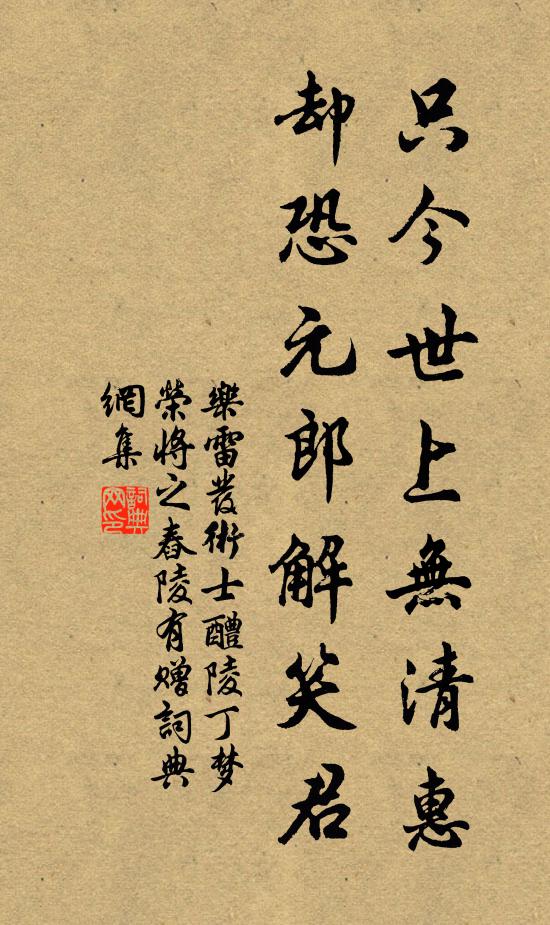 只今世上無清惠
却恐元郎解笑君
樂雷發術士醴陵丁梦
榮將之舂陵有赠詞典
網集
詞典网印